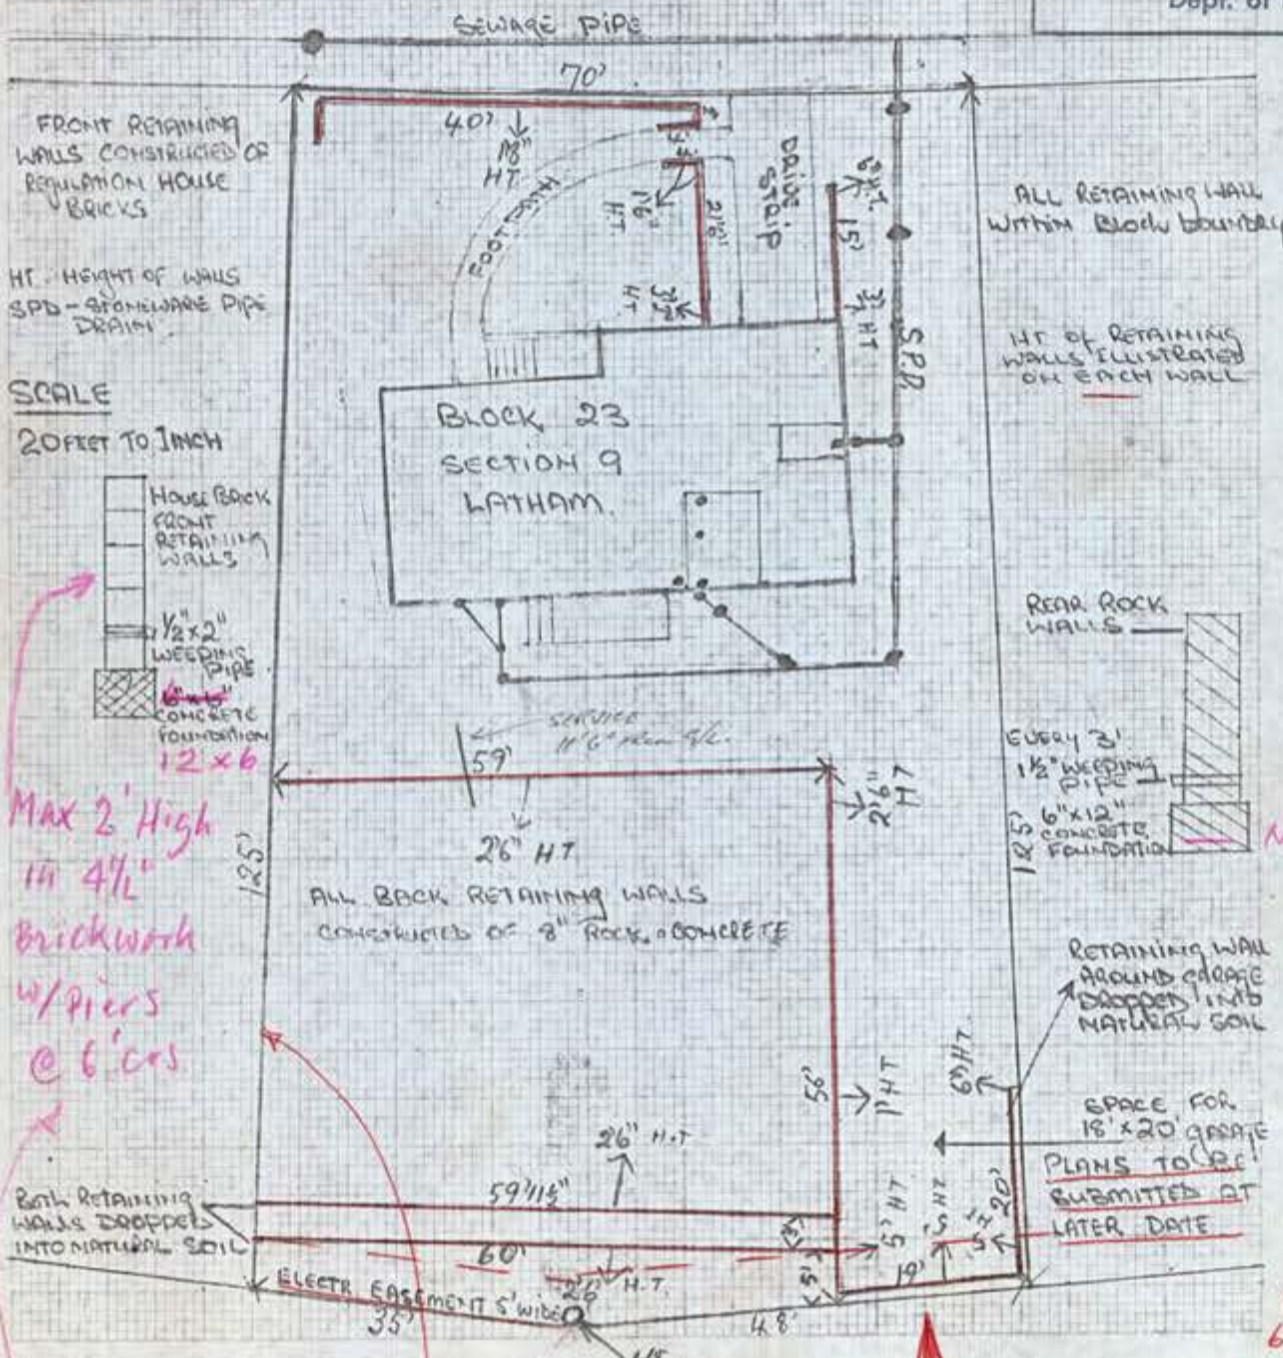 Dept. of
SEWAGE PIPE
70'
FRONT RETAINING
WALLS CONSTRUCTED OF
REGULATION HOUSE
BRICKS
HT. HEIGHT OF WALLS
SPD - STONEWARE PIPE
DRAIN.
SCALE
20 FEET TO 1 INCH
HOUSE BRICK
FRONT
RETAINING
WALLS
1/2" x 2"
WEEPING
PIPE.
CONCRETE
FOUNDATION
12 x 6
Max 2' High
in 4 1/2"
Brickwork
w/ Piers
@ 6' crs
40'
18"
HT.
FOOTPATH
1'6"
HT
21'6"
HT.
DRIVE
STRIP
6" HT.
15'
HT
S.P.D
ALL RETAINING WALL
WITHIN BLOCK BOUNDRY
HT OF RETAINING
WALLS ILLISTRATED
ON EACH WALL
BLOCK 23
SECTION 9
LATHAM.
REAR ROCK
WALLS
EVERY 3'
1 1/2" WEEPING
PIPE
6" x 12"
CONCRETE
FOUNDATION
SERVICE
59'
2'6" HT
2'6"
HT
125'
125'
ALL BACK RETAINING WALLS
CONSTRUCTED OF 8" ROCK & CONCRETE
RETAINING WALL
AROUND GARAGE
DROPPED INTO
NATURAL SOIL
56'
1' HT
6" HT.
SPACE FOR
18' x 20' GARAGE
PLANS TO BE
SUBMITTED AT
LATER DATE
2'6" H.T
59'11 1/2"
BOTH RETAINING
WALLS DROPPED
INTO NATURAL SOIL
60'
5' HT
5' HT
5' HT
20'
19'
5'
2'6" H.T.
ELECTR EASEMENT 5' WIDE
35'
48'